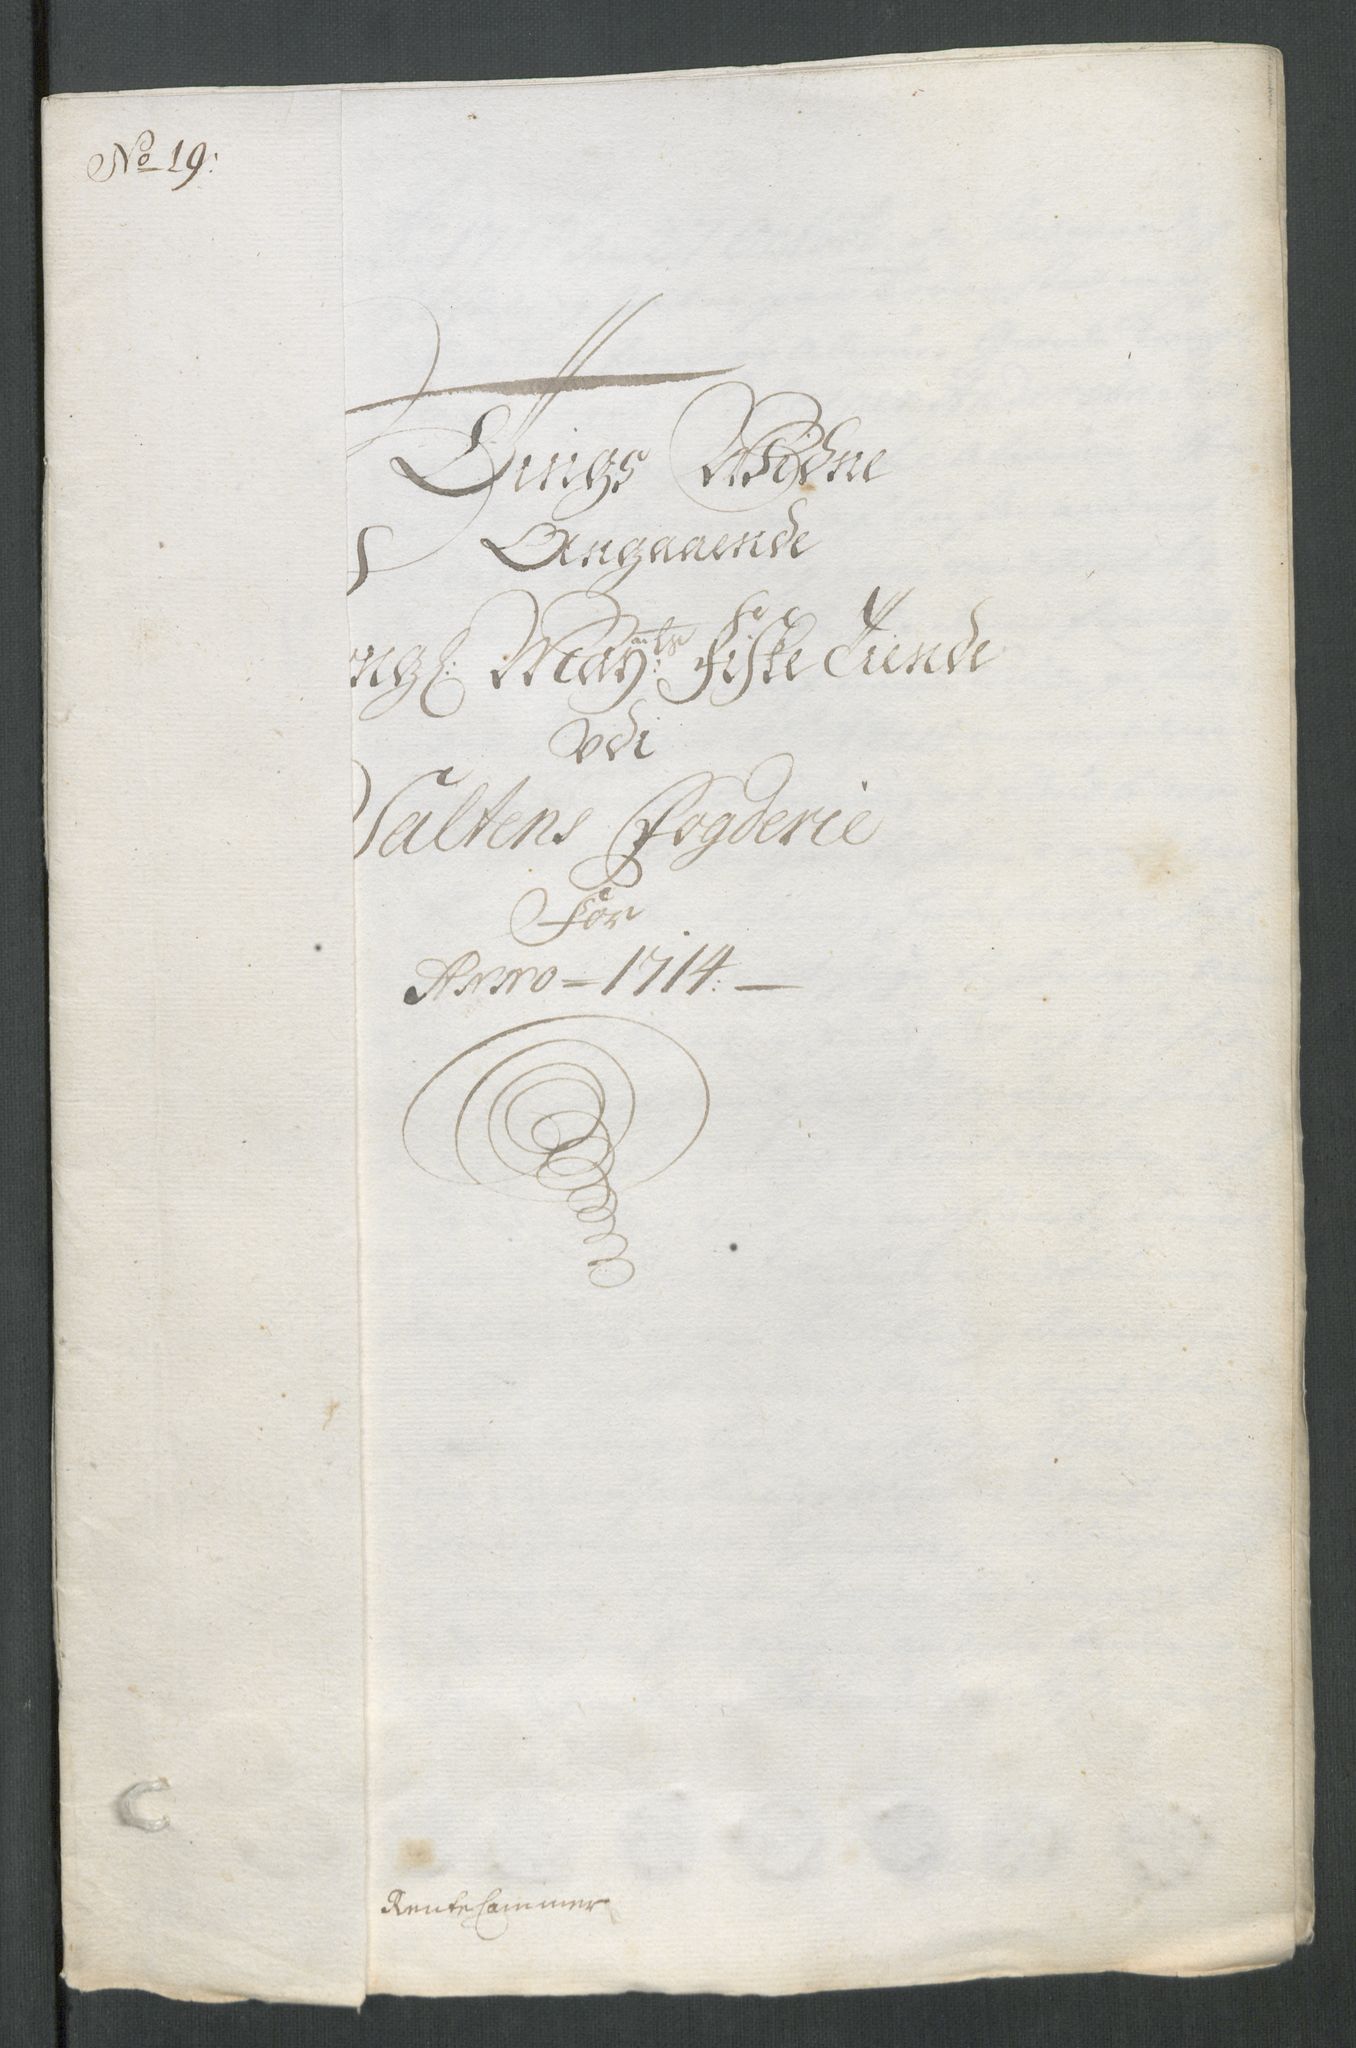 No 19:
Tings Widne
Angaaende
ngl: Mayts: Fiske Tiende
vdi
Saltens Fogderie
For
Anno - 1714: -
Rente Cammer